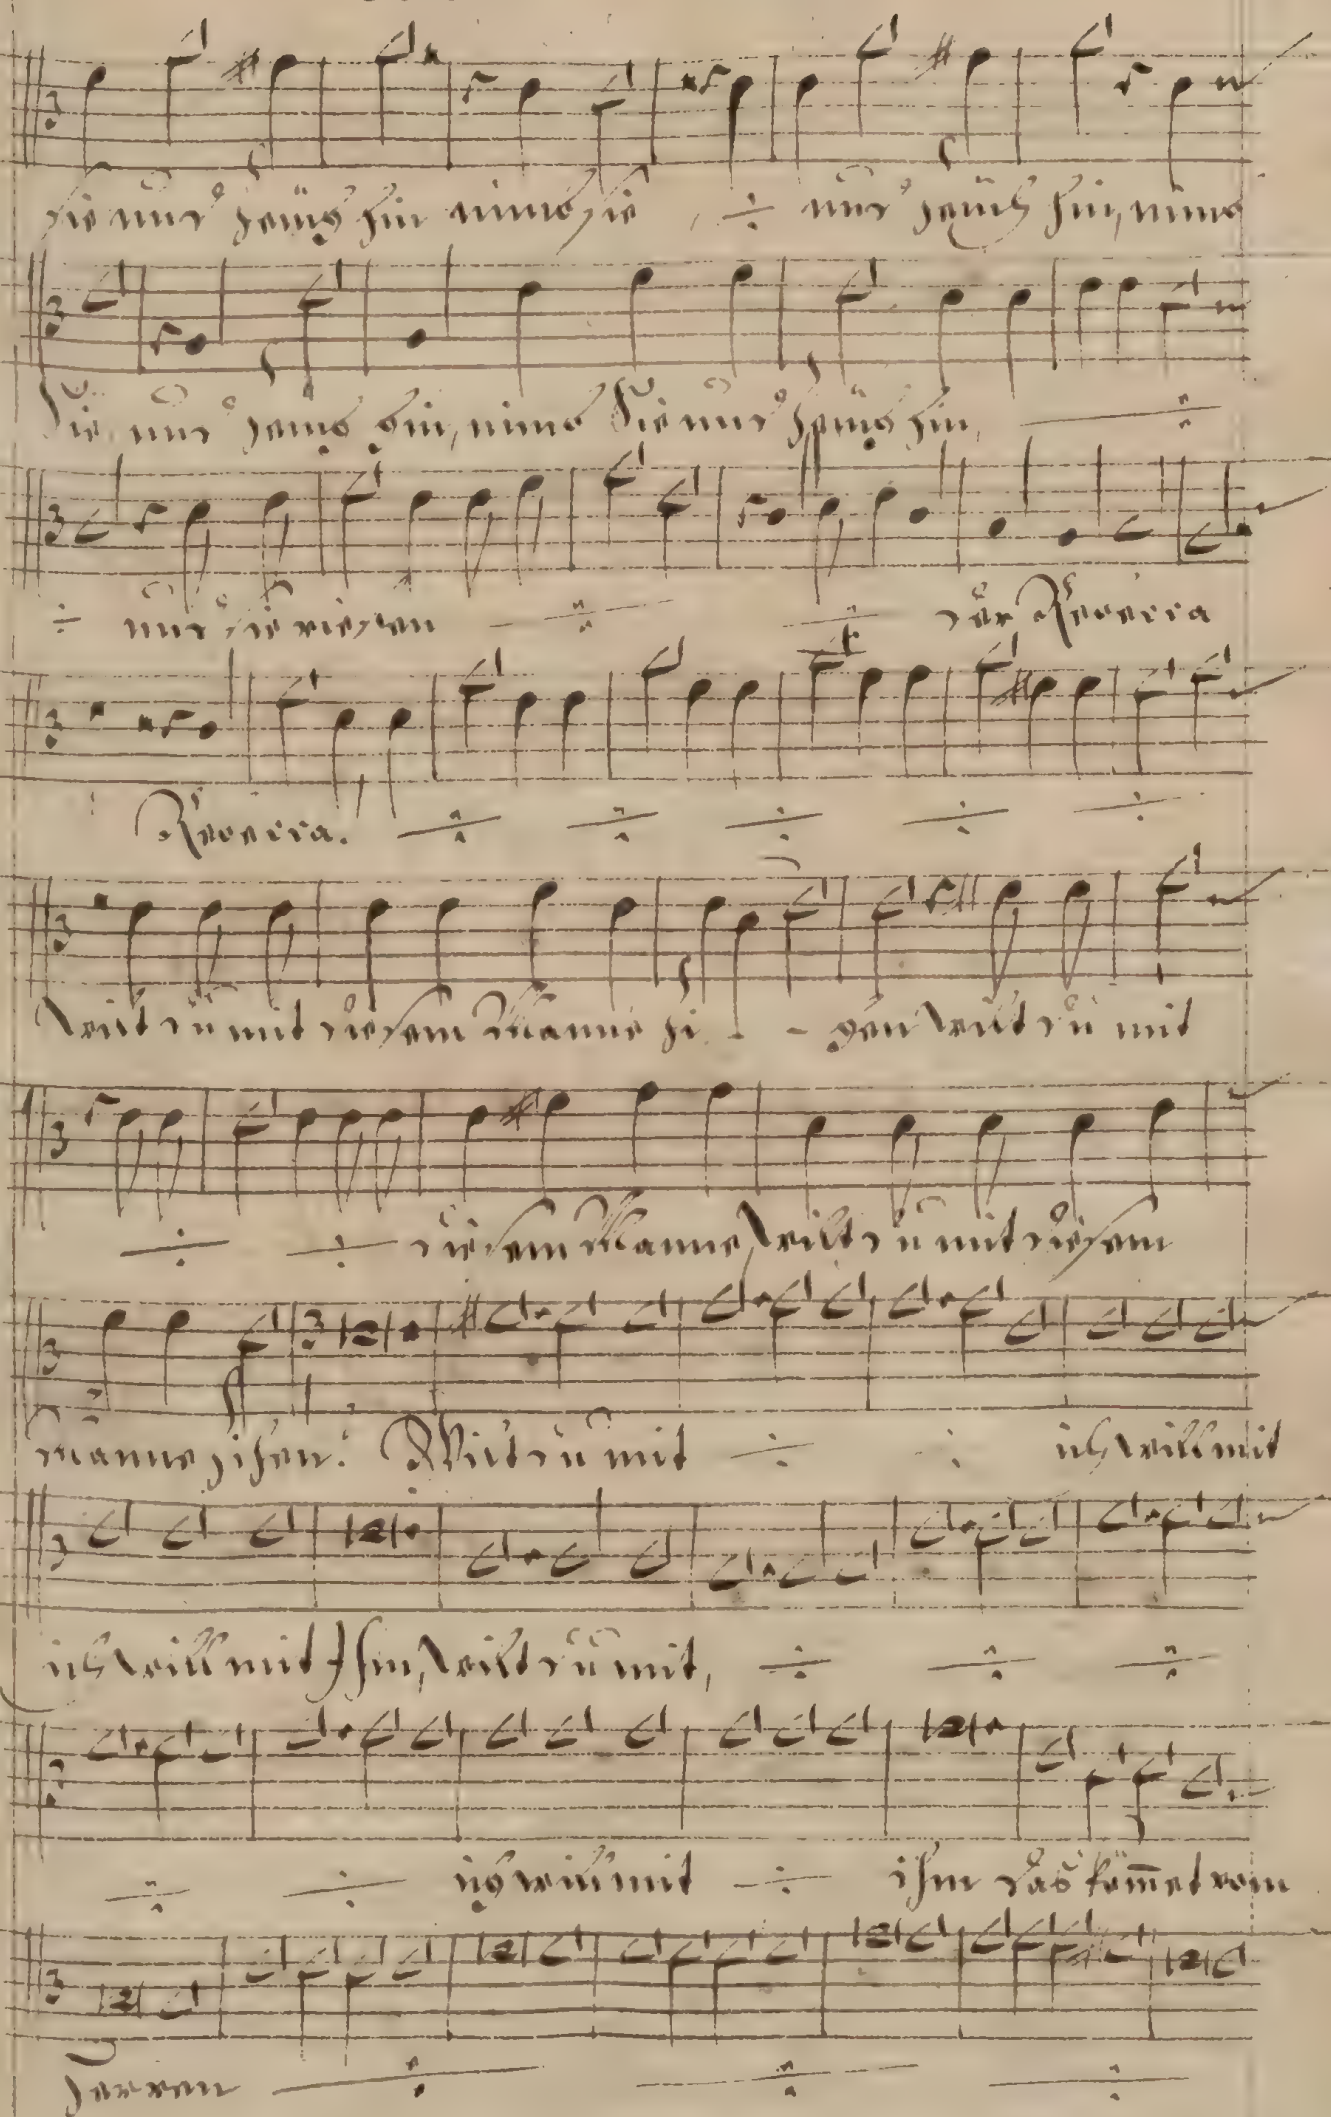 sie und zeüch hin nimb sie ÷ und zeüch hin, nimb
Sie und zeüch hin, nimb Sie und zeüch hin, ÷
÷ und sie riefen ÷ ÷ der Rebecca
Rebecca. ÷ ÷ ÷ ÷ ÷
Wilt du mit diesem Manne zi - - hen wilt du mit
÷ ÷ diesem Manne, wilt du mit diesem
Manne zihen. Wilt du mit ÷ ÷ ich will mit
ich will mit Ihm, wilt du mit, ÷ ÷ ÷
÷ ÷ ich will mit ÷ ihm das kom̄et vom
Herren ÷ ÷ ÷